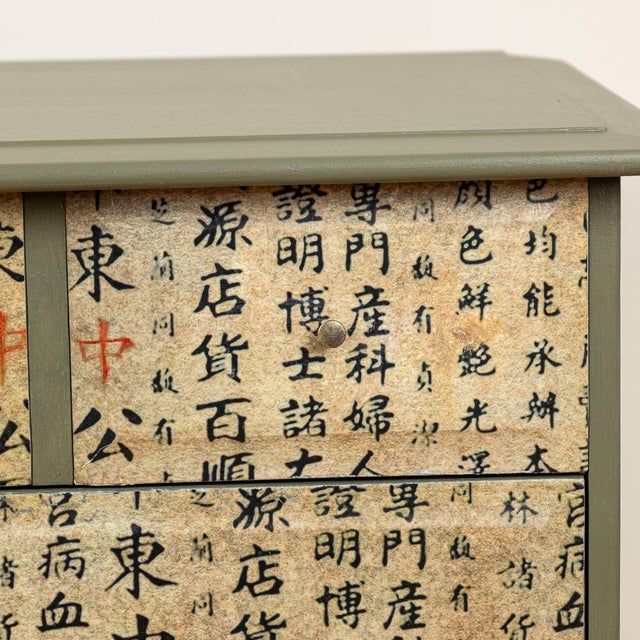 色均能承辦本
顏色鮮艷光澤
問數有貞潔
專門產科婦人
證明博士諸大
源店貨百順
芝蘭同數有
東中公
東中公
宮病血
林諸
問數有
專門產
證明博
源店貨
芝蘭同
東中
宮病血